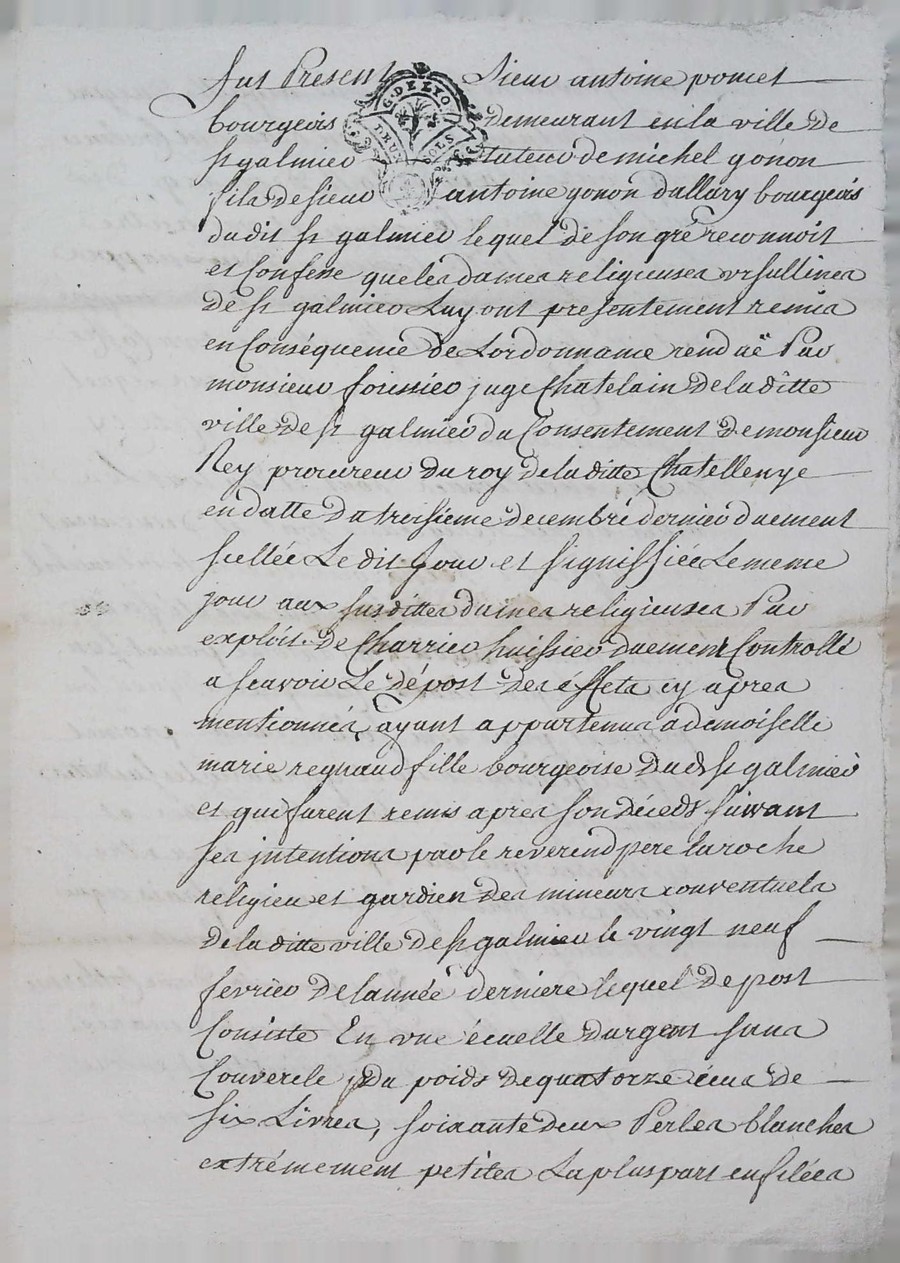 fut Present Sieur antoine poncet
G. DE LYO
DEUX SOLS
bourgeois demeurant en la ville de
st galmier tuteur de michel gonon
fils de sieur antoine gonon dallary bourgeois
dudit st galmier lequel de son gré reconnoit
et Confesse que les dames religieuses ursullines
de st galmier Luy ont presentement remis
en Conséquence de Lordonnance renduë Par
monsieur foissier juge Chatelain de la ditte
ville de st galmier du Consentement de monsieur
Rey procureur du roy de la ditte Chatellenye
en datte du troisieme decembre dernier duement
scellée Le dit Jour et signiffiée Le meme
jour aux susdittes dames religieuses Par
exploit de Charrier huissier duement Controllé
a scavoir Le dépost des éffets cy apres
mentionnés ayant appartenus a demoiselle
marie regnaud fille bourgeoise dudt st galmier
et qui furent remis apres son déceds suivant
ses jntentions par le reverend pere laroche
religieux et gardien des mineurs conventuels
de la ditte ville de st galmier le vingt neuf
fevrier de lannée derniere lequel depost
Consiste En une écuelle dargent sans
Couvercle du poids de quatorze écus de
six Livres, soixante deux Perles blanches
extrémement petites La pluspart enfilées